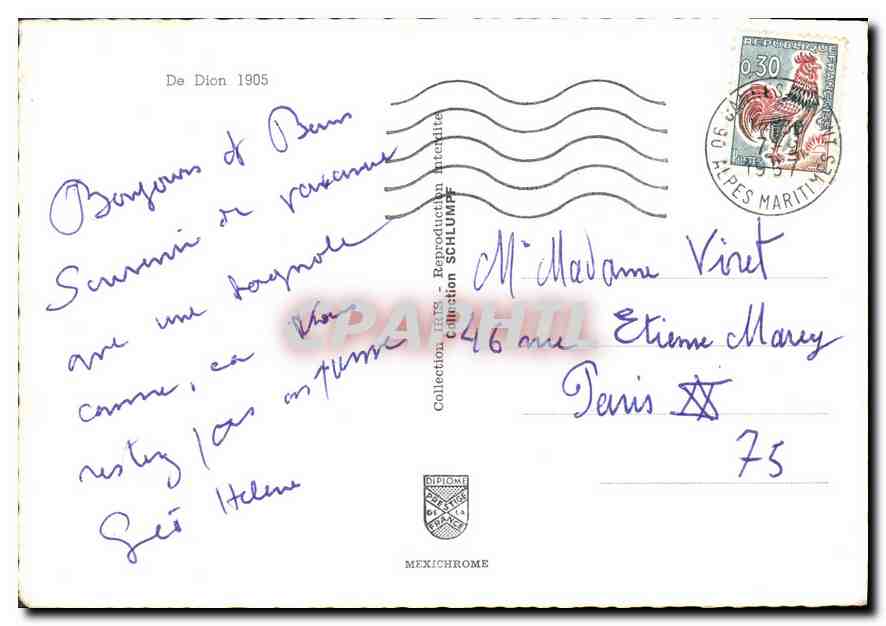 De Dion 1905
Bonjours et Bons
Souvenir de vacances
que une bagnole
comme, ca Vous
restez pas en panne
Géo Helene
Collection IRIS - Reproduction interdite
Collection SCHLUMPF
CPAPHIL
REPUBLIQUE FRANÇAISE
0,30
06
ALPES MARITIMES
Mr Madame Viret
46 rue Etienne Marey
Paris XX
75
DIPLOME
PRESTIGE
DE LA
FRANCE
MEXICHROME